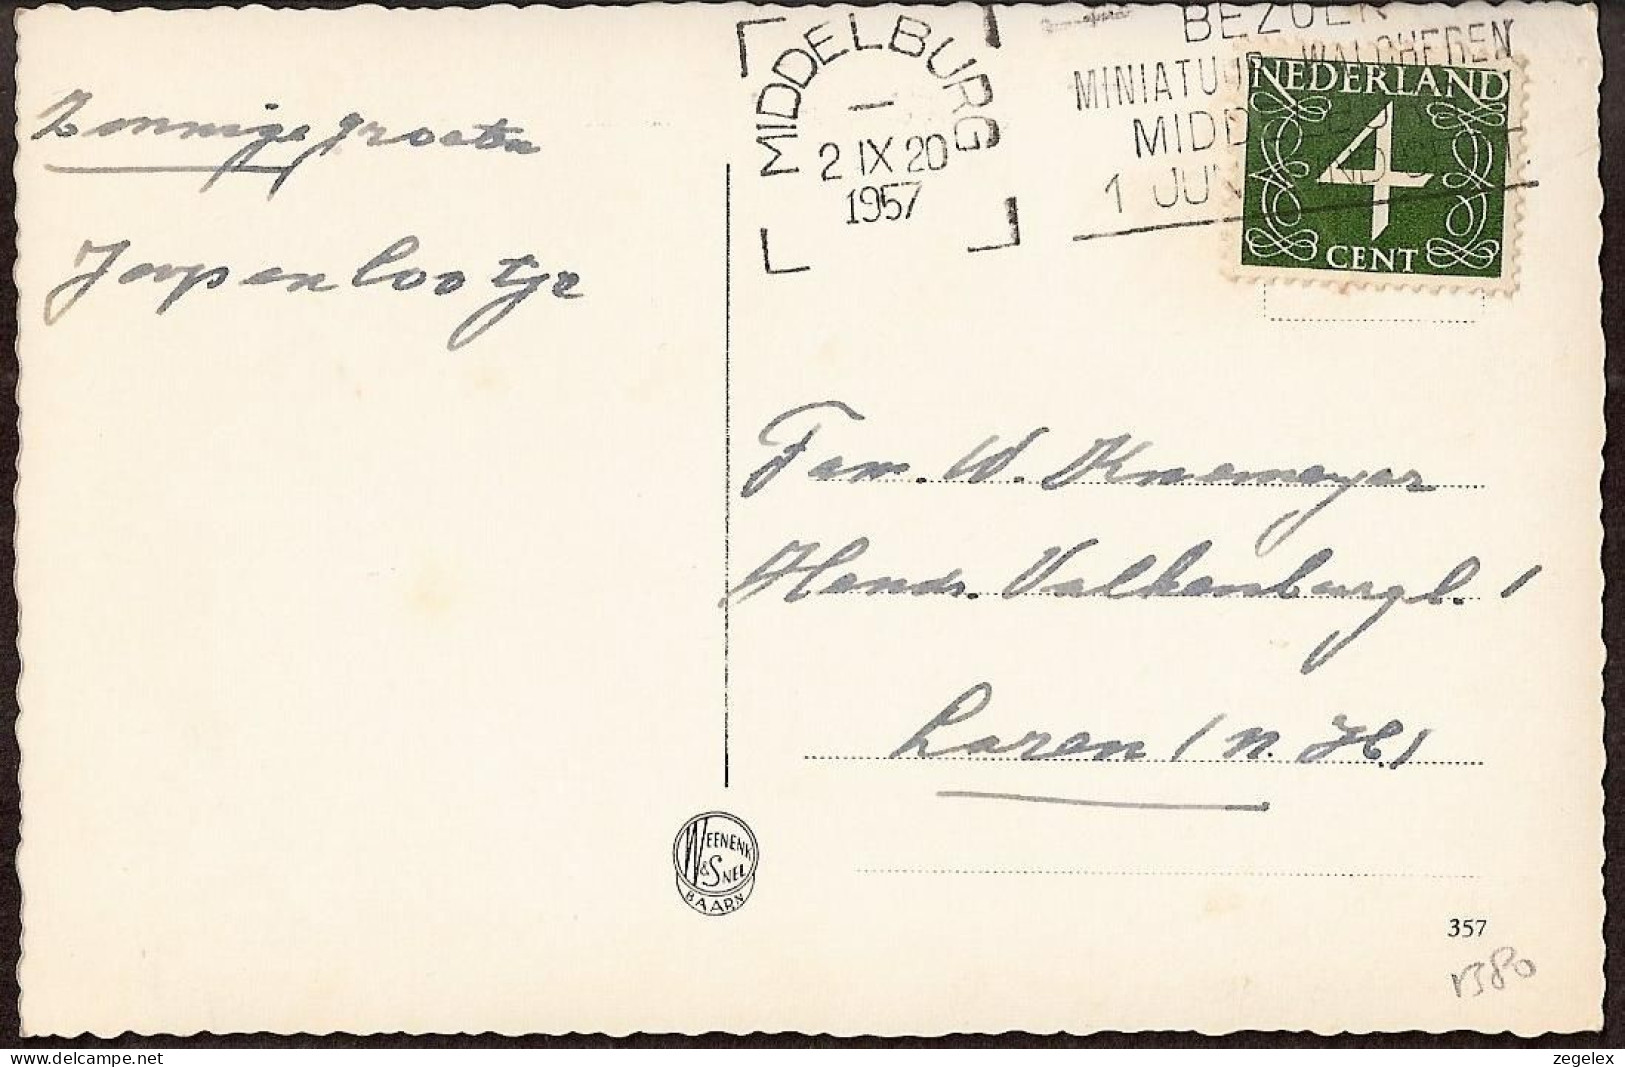 Zonnige groeten
Jaap en Cootje
MIDDELBURG
1
2 IX 20
1957
BEZOEK
MINIATUUR WALCHEREN
MIDD
1 JUN
NEDERLAND
4
CENT
Fam. W. Knemeyer
Hendr. Valkenburgl. 1
Laren (N.H.)
WEENENK
& SNEL
BAARN
357
zegelex
© zegelex.com